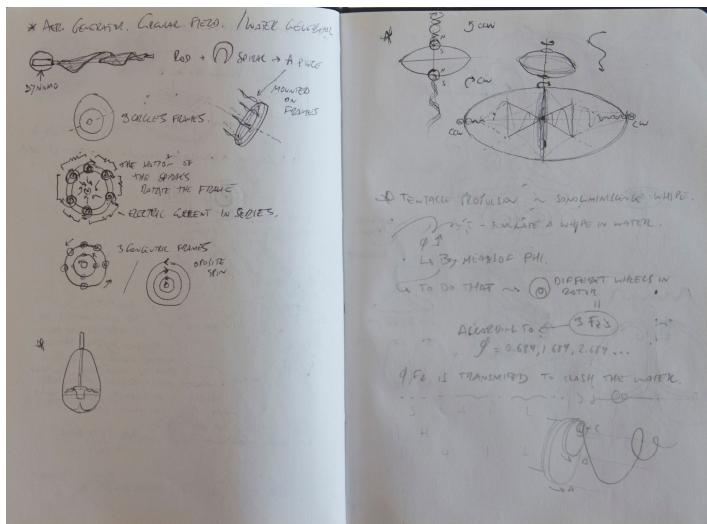 * AER GENERATOR. CIRCULAR PIEZO. / WATER GENERATOR
ROD + SPIRAL → A PIECE
DYNAMO
MOUNTED
ON
FRAMES
3 CIRCLES FRAMES.
THE MOTION OF
THE SPIRALS
ROTATE THE FRAME
ELECTRIC CURRENT IN SERIES.
3 CONCENTRIC FRAMES
OPOSITE
SPIN
CCW
N
S
N
S
CW
CCW
CW
TENTACLE PROPULSION ~
- SIMULATE A WHIPE IN WATER.
φ
↳ BY MEANS OF PHI.
↳ TO DO THAT DIFFERENT WHEELS IN
ROTOR
ACCORDING TO ← 3 Fζs
φ = 0.684, 1.684, 2.684 ...
IS TRANSMITED TO THE WATER.
S
H
A